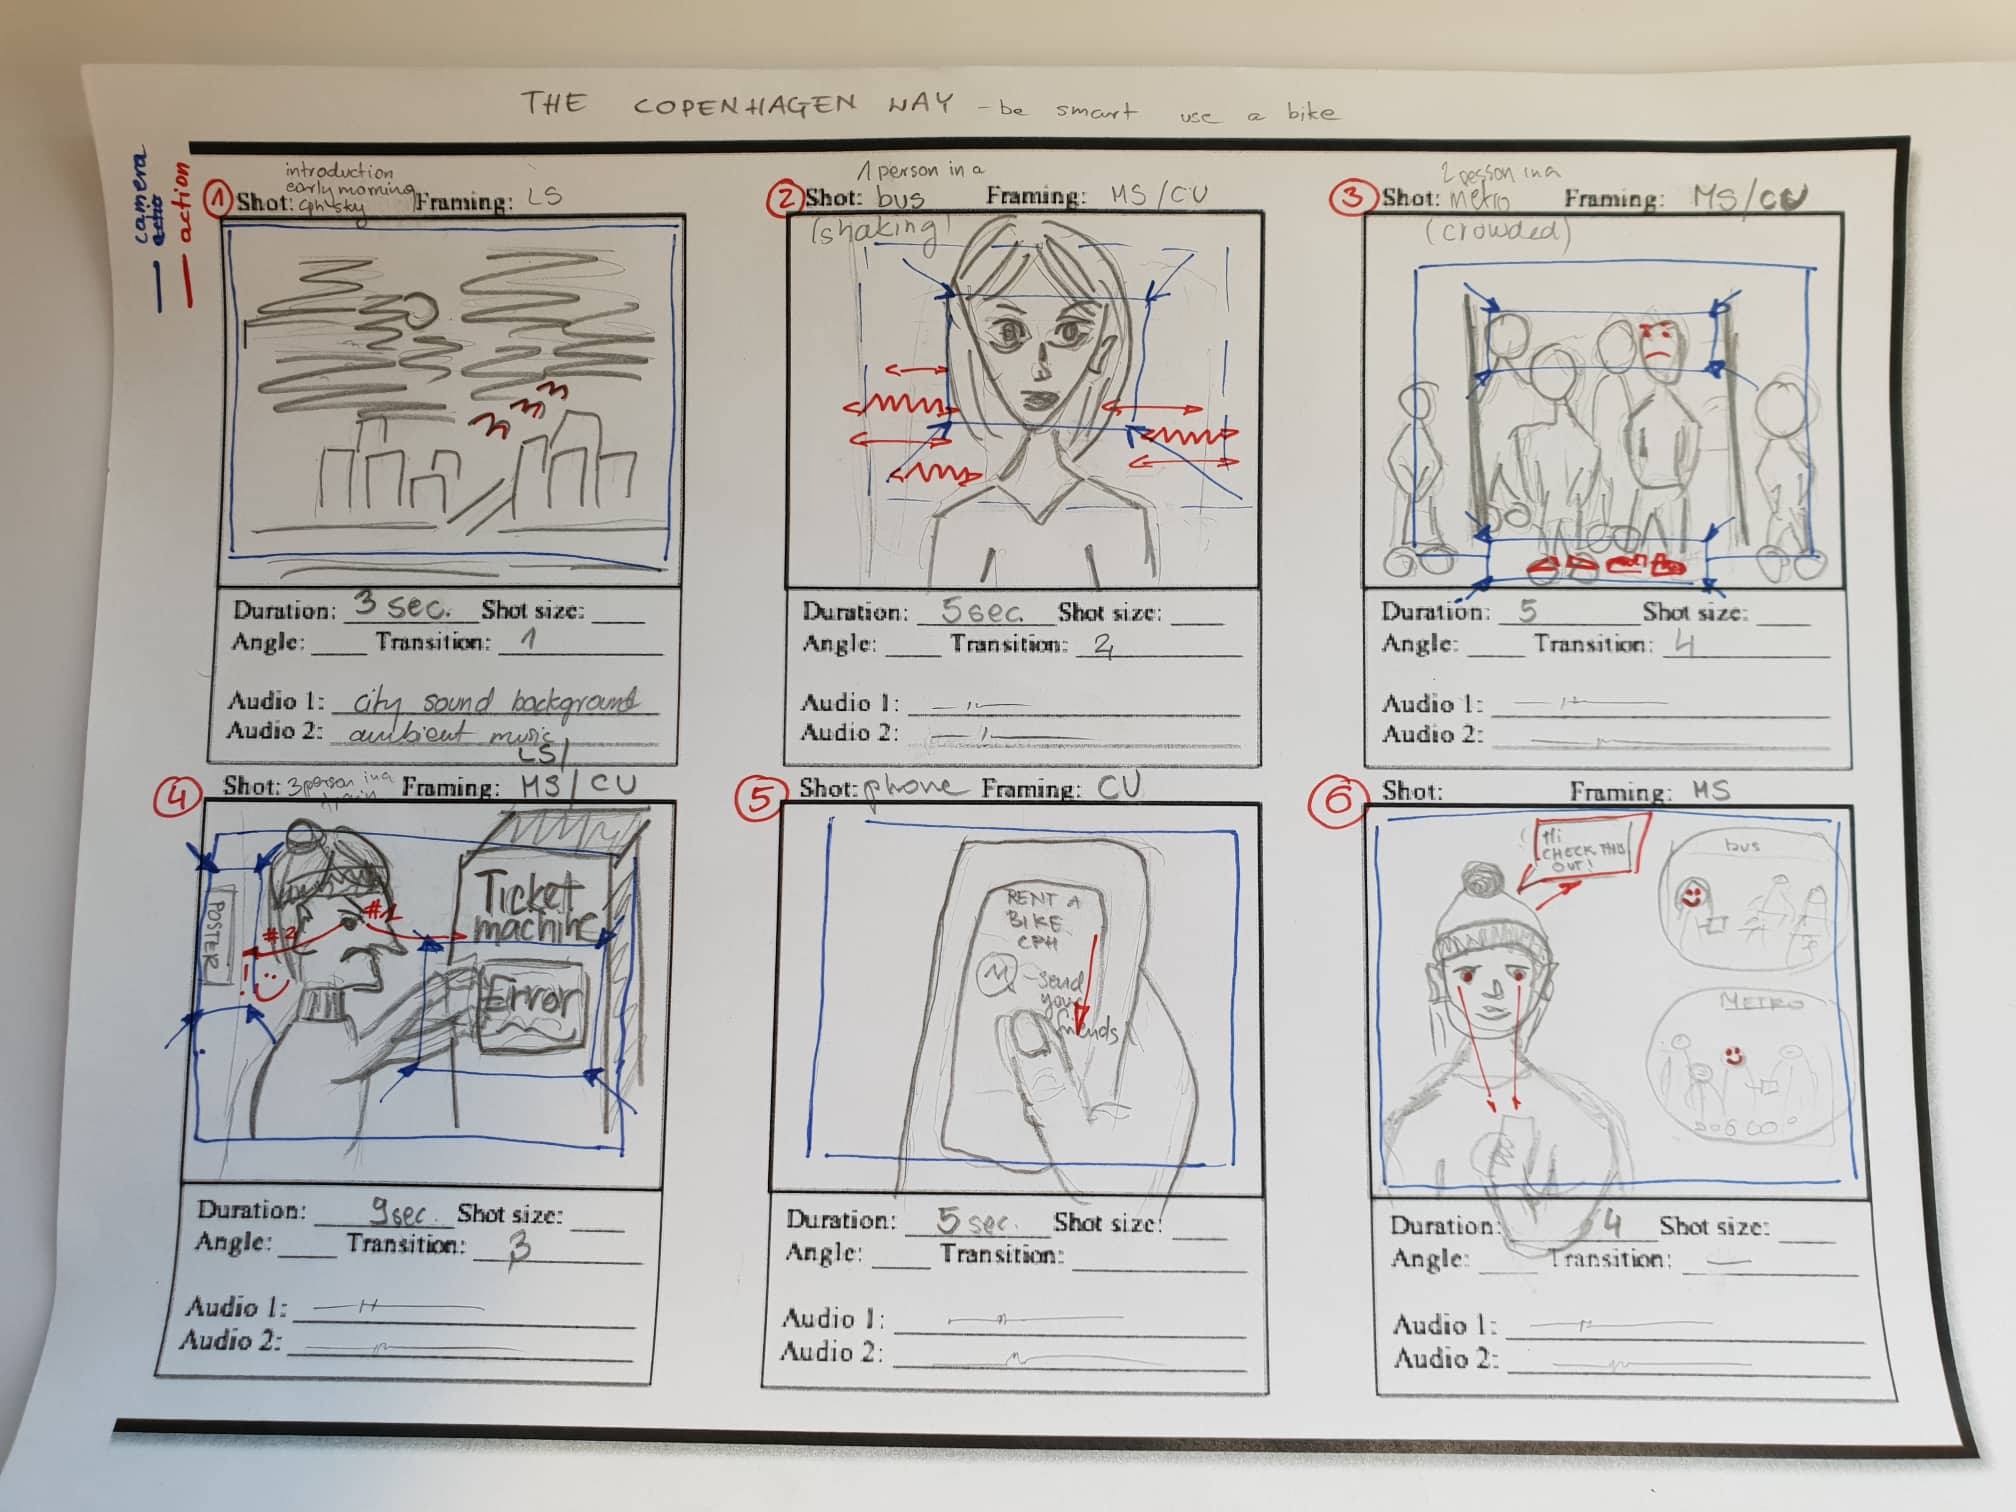 THE COPENHAGEN WAY - be smart use a bike
camera
action
introduction
early morning
① Shot: cph sky Framing: LS
Duration: 3 sec. Shot size:
Angle: Transition: 1
Audio 1: city sound background
Audio 2: ambient music
1 person in a
② Shot: bus Framing: MS/CU
(shaking)
Duration: 5 sec. Shot size:
Angle: Transition: 2
Audio 1: -"-
Audio 2: -"-
2 person in a
③ Shot: metro Framing: MS/CU
(crowded)
Duration: 5 Shot size:
Angle: Transition: 4
Audio 1: -"-
Audio 2: -"-
LS/
④ Shot: 3 person in a Framing: MS/CU
POSTER
#1
#2
!
Ticket
machine
Error
Duration: 9 sec. Shot size:
Angle: Transition: 3
Audio 1: -"-
Audio 2: -"-
⑤ Shot: phone Framing: CU
RENT A
BIKE
CPH
M - send
your
friends!
Duration: 5 sec. Shot size:
Angle: Transition:
Audio 1: -"-
Audio 2: -"-
⑥ Shot: Framing: MS
Hi
CHECK THIS
OUT!
bus
METRO
Duration: 4 Shot size:
Angle: Transition: —
Audio 1: -"-
Audio 2: -"-